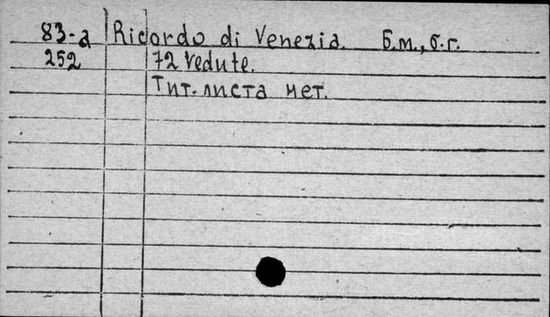 83-a Ricordo di Venezia. Б.м., б.г.
252 72 vedute.
Тит. листа нет.